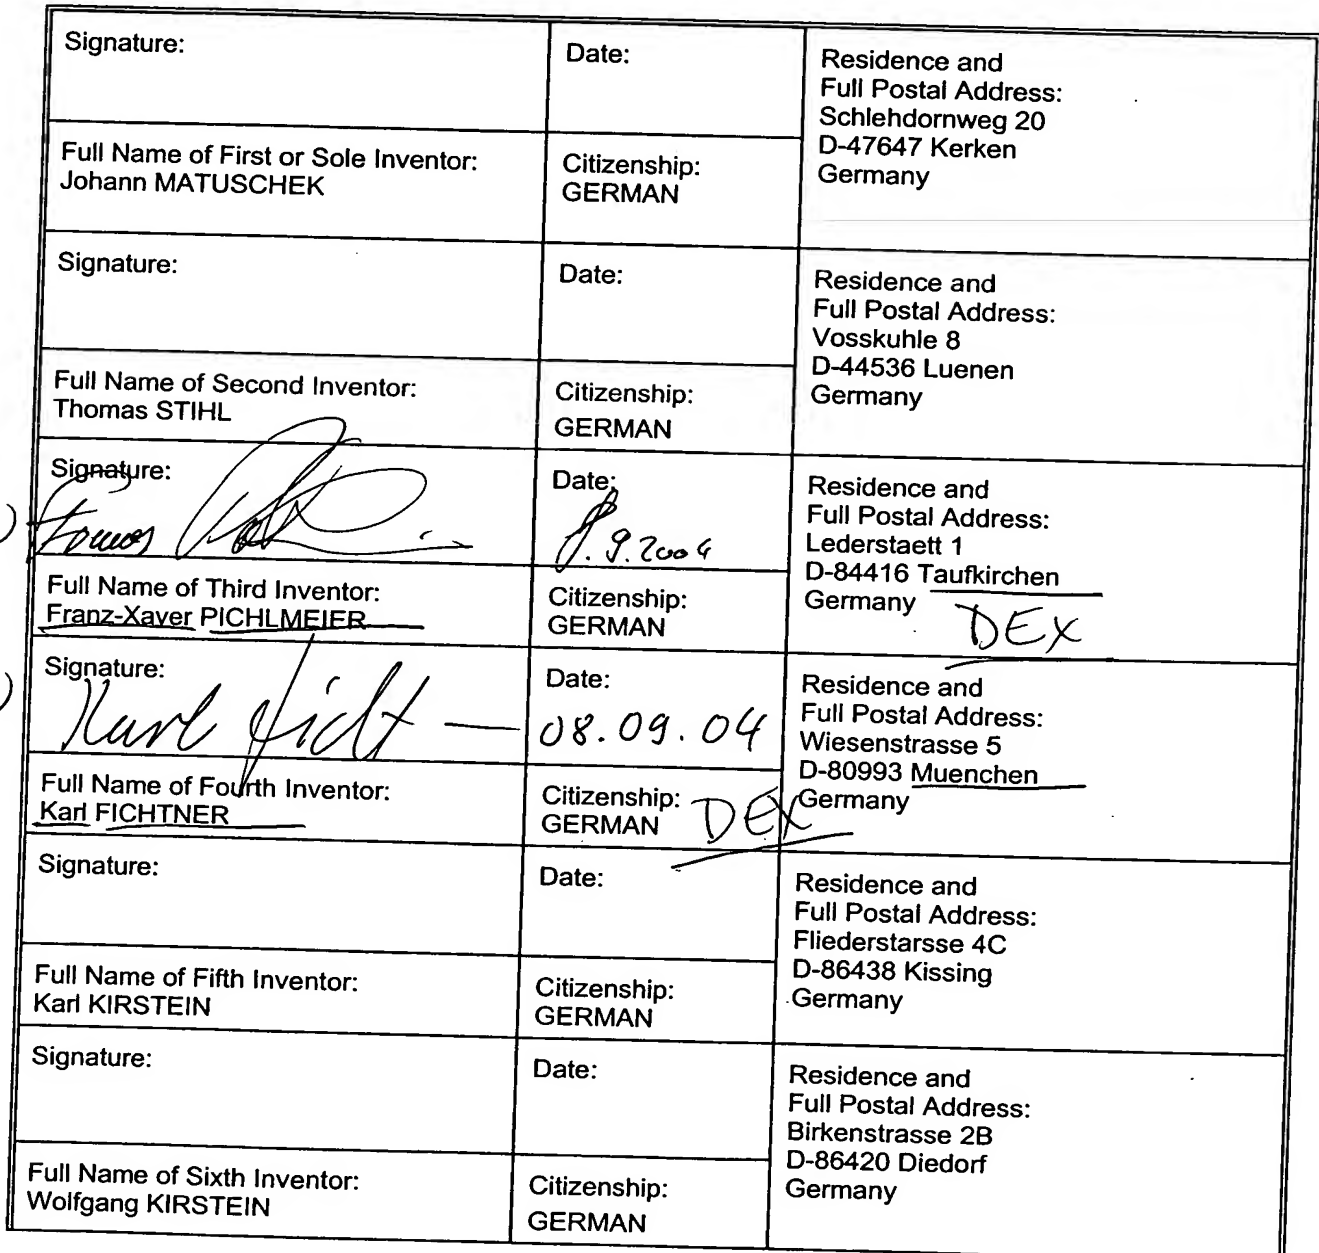 Signature:
Date:
Residence and
Full Postal Address:
Schlehdornweg 20
D-47647 Kerken
Germany
Full Name of First or Sole Inventor:
Johann MATUSCHEK
Citizenship:
GERMAN
Signature:
Date:
Residence and
Full Postal Address:
Vosskuhle 8
D-44536 Luenen
Germany
Full Name of Second Inventor:
Thomas STIHL
Citizenship:
GERMAN
Signature:
Date:
9.2004
Residence and
Full Postal Address:
Lederstaett 1
D-84416 Taufkirchen
Germany
DEX
Full Name of Third Inventor:
Franz-Xaver PICHLMEIER
Citizenship:
GERMAN
Signature:
Karl Ficht
Date:
08.09.04
Residence and
Full Postal Address:
Wiesenstrasse 5
D-80993 Muenchen
Germany
Full Name of Fourth Inventor:
Karl FICHTNER
Citizenship:
GERMAN
DEX
Signature:
Date:
Residence and
Full Postal Address:
Fliederstarsse 4C
D-86438 Kissing
Germany
Full Name of Fifth Inventor:
Karl KIRSTEIN
Citizenship:
GERMAN
Signature:
Date:
Residence and
Full Postal Address:
Birkenstrasse 2B
D-86420 Diedorf
Germany
Full Name of Sixth Inventor:
Wolfgang KIRSTEIN
Citizenship:
GERMAN